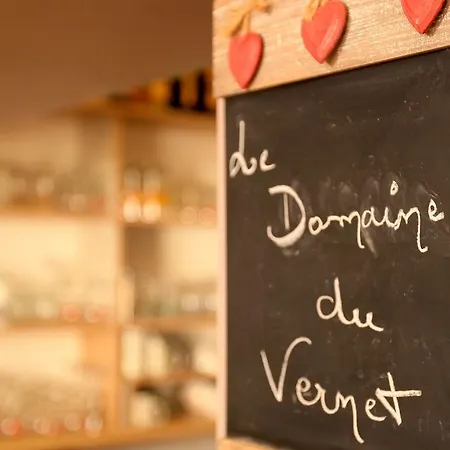 Le
Domaine
du
Vernet